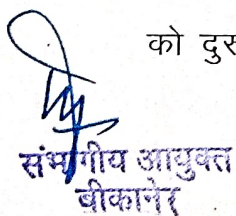 को दुस
संभागीय आयुक्त
बीकानेर